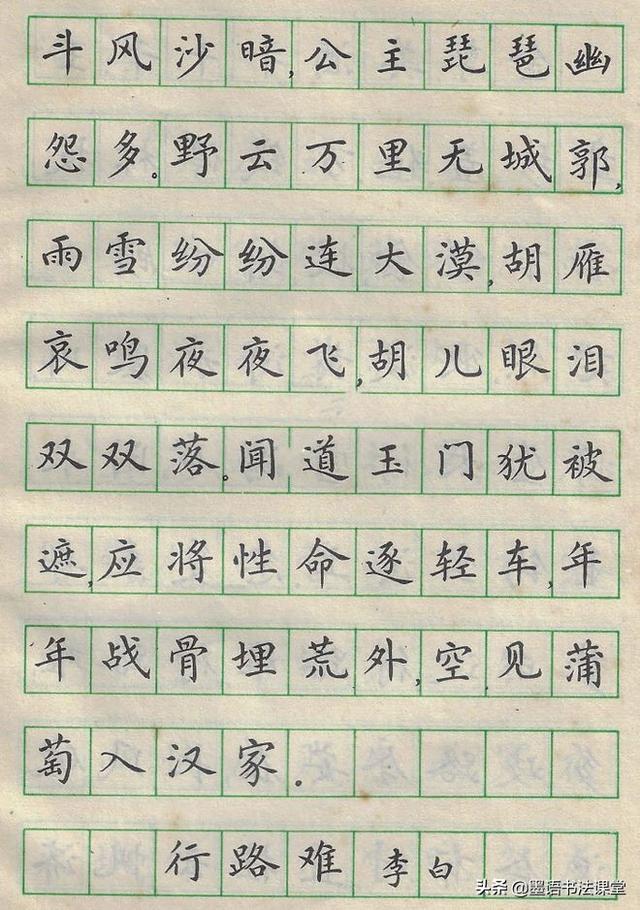 斗风沙暗,公主琵琶幽
怨多。野云万里无城郭,
雨雪纷纷连大漠,胡雁
哀鸣夜夜飞,胡儿眼泪
双双落。闻道玉门犹被
遮,应将性命逐轻车,年
年战骨埋荒外,空见蒲
萄入汉家.
行路难 李白
头条 @墨语书法课堂